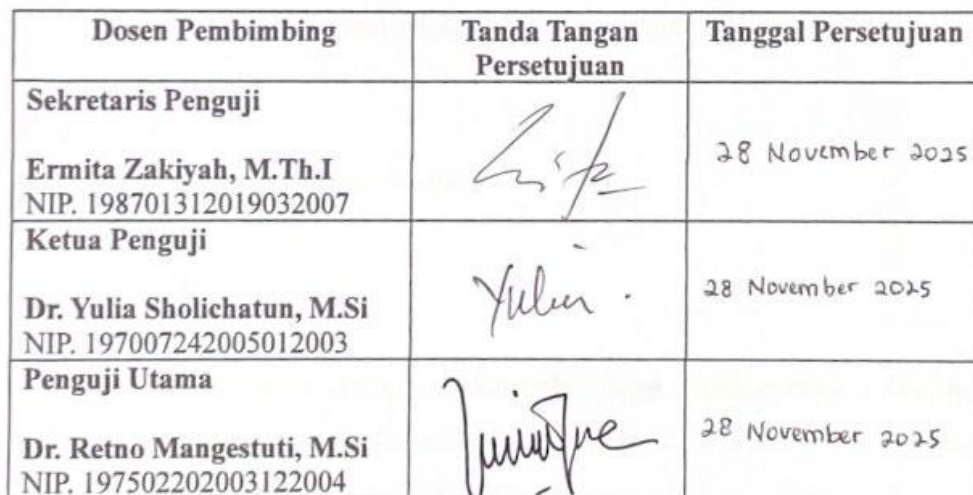 Dosen Pembimbing
Tanda Tangan
Persetujuan
Tanggal Persetujuan
Sekretaris Penguji
Ermita Zakiyah, M.Th.I
NIP. 198701312019032007
28 November 2025
Ketua Penguji
Dr. Yulia Sholichatun, M.Si
NIP. 197007242005012003
28 November 2025
Penguji Utama
Dr. Retno Mangestuti, M.Si
NIP. 197502202003122004
28 November 2025